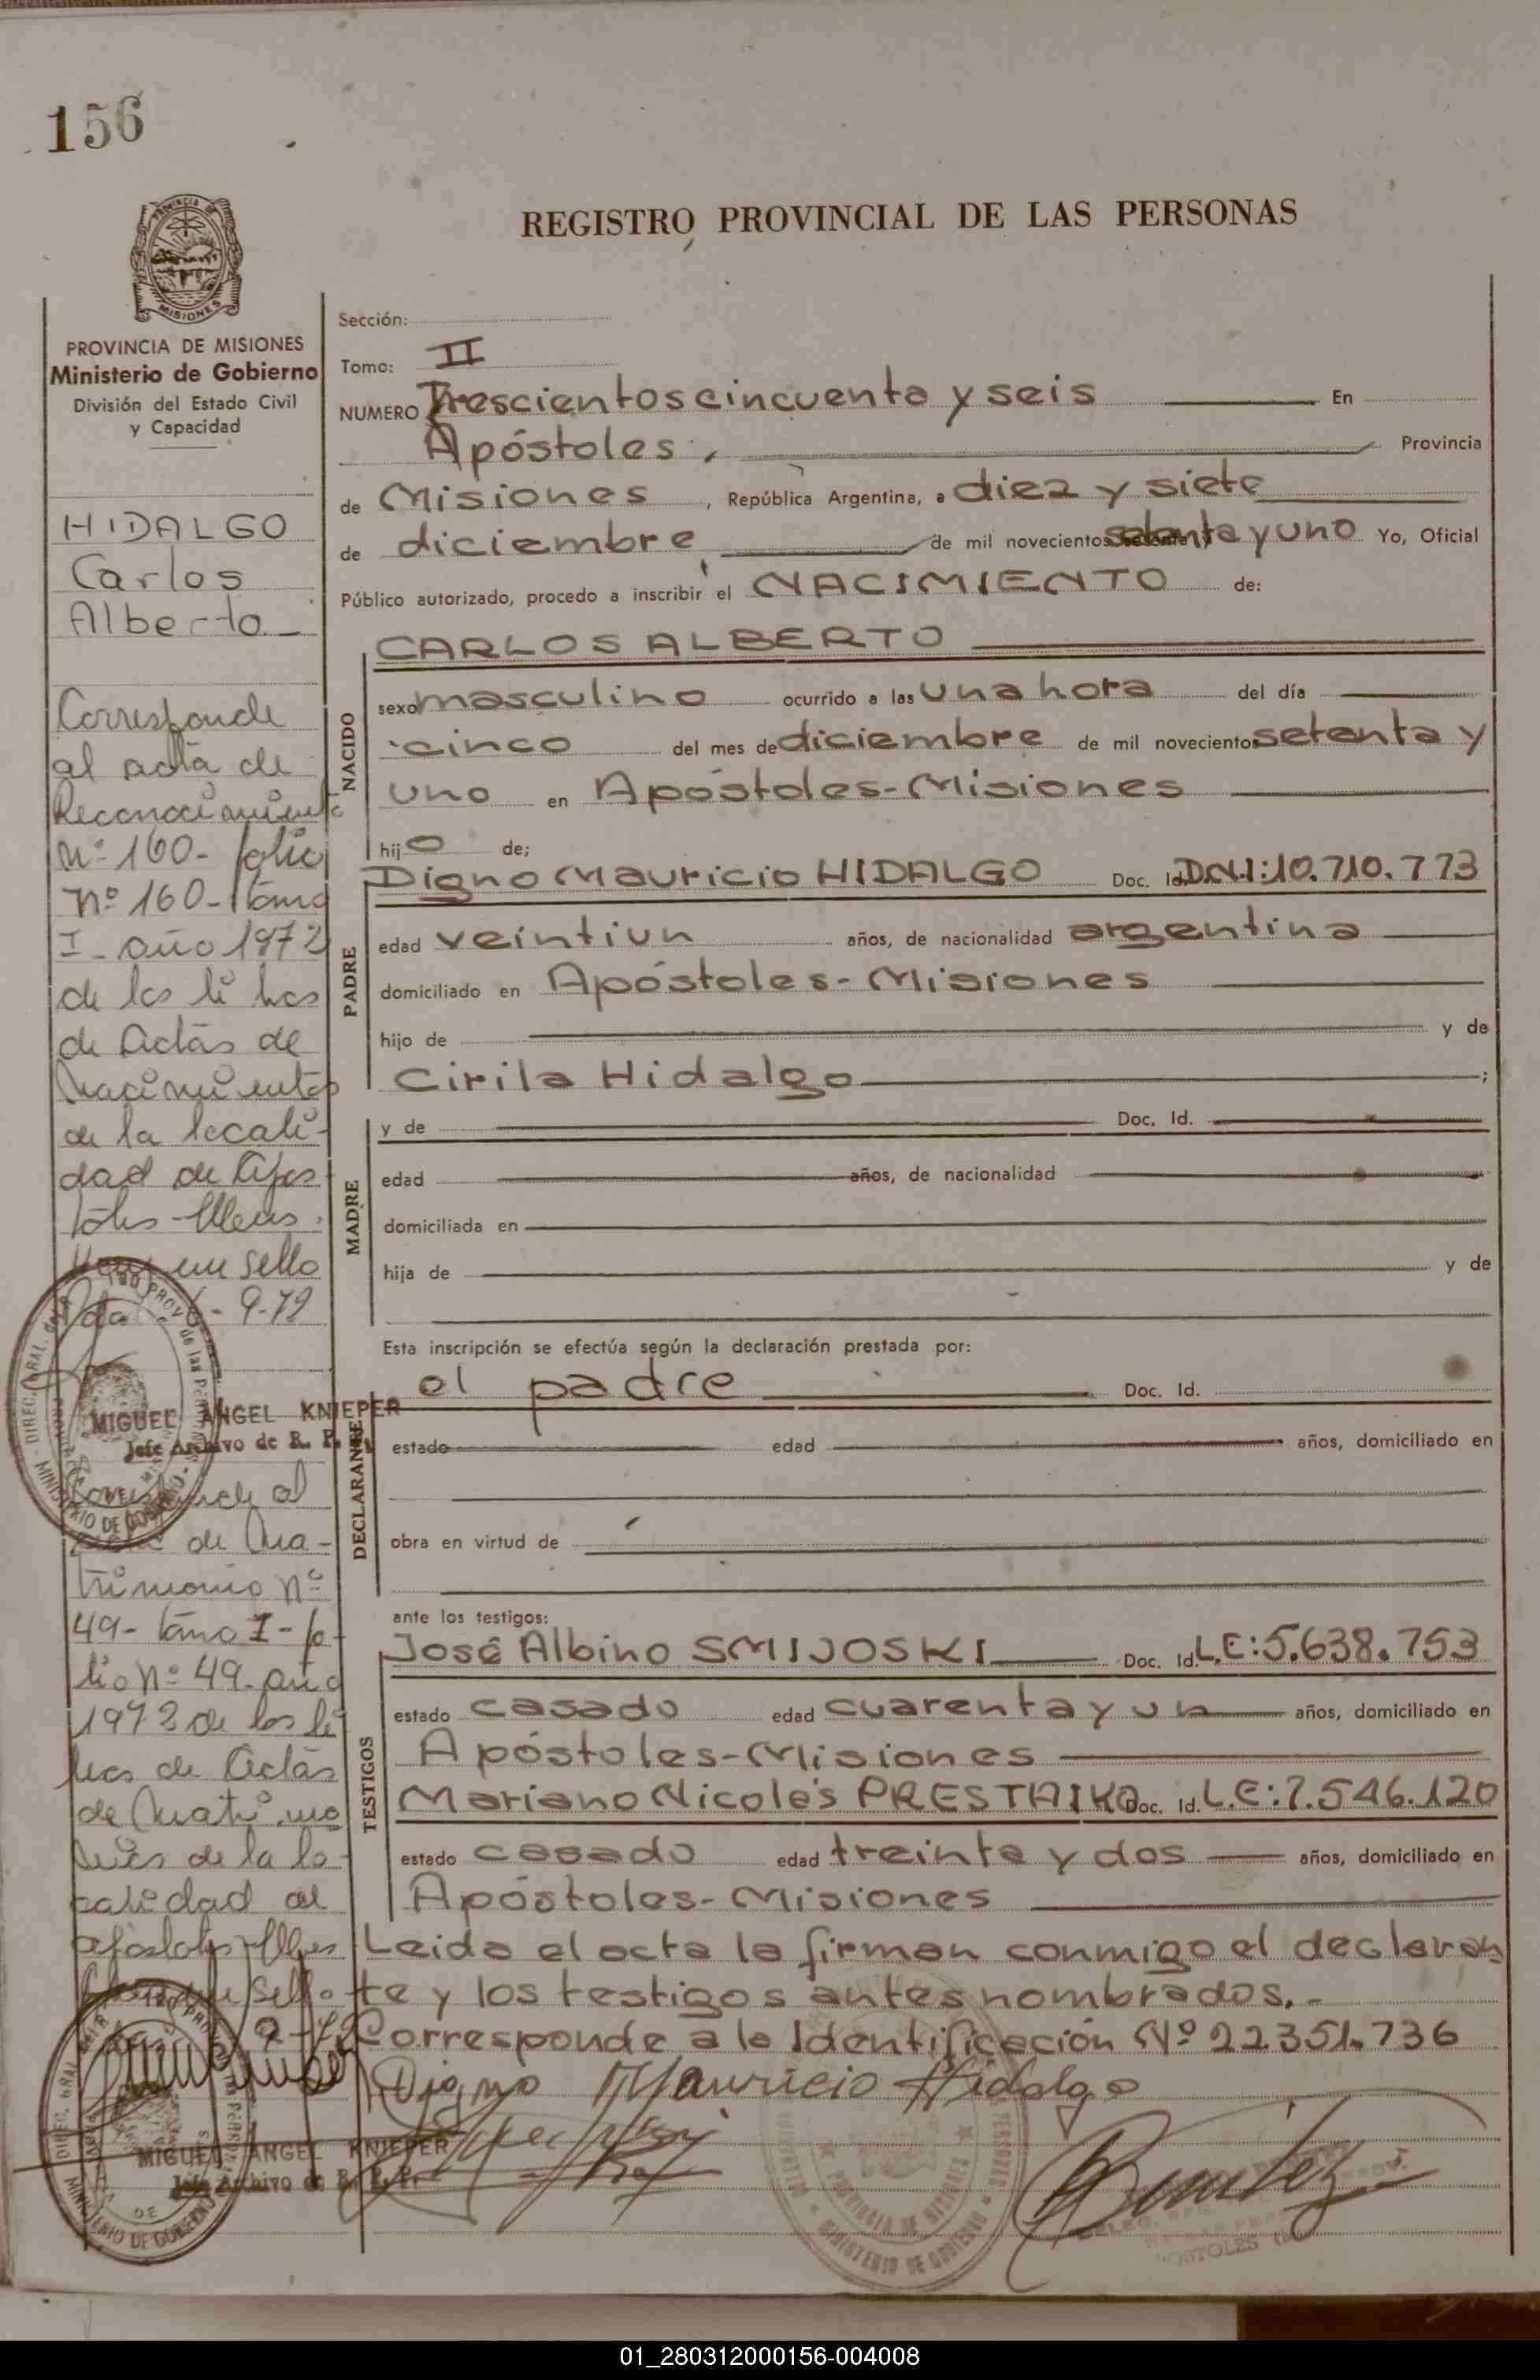 156
REGISTRO PROVINCIAL DE LAS PERSONAS
PROVINCIA DE MISIONES
Ministerio de Gobierno
División del Estado Civil
y Capacidad
HIDALGO
Carlos
Alberto
Corresponde
al acta de
Reconocimiento
nº 160- folio
nº 160- tomo
I- año 1972
de los libros
de Actas de
Nacimientos
de la locali-
dad de Após
toles-Mnes.
un sello
6-9-79
MIGUEL ANGEL KNIEPER
Jefe Archivo de R. P. P.
Corresponde al
de Ma-
trimonio nº
49- tomo I- fo-
lio nº 49- año
1972 de los li
bros de Actas
de Matrimo
nios de la lo-
calidad de
Apóstoles-Mnes
sello
9-79
MIGUEL ANGEL KNIEPER
Jefe Archivo de R. P. P.
Sección:
Tomo: II
NUMERO Trescientos cincuenta y seis En
Apóstoles, Provincia
de Misiones, República Argentina, a diez y siete
de diciembre de mil novecientos setenta y uno Yo, Oficial
Público autorizado, procedo a inscribir el NACIMIENTO de:
NACIDO
CARLOS ALBERTO
sexo masculino ocurrido a las una hora del día
cinco del mes de diciembre de mil novecientos setenta y
uno en Apóstoles-Misiones
hijo de;
PADRE
Digno Mauricio HIDALGO Doc. Id. D.N.I:10.710.773
edad veintiun años, de nacionalidad argentina
domiciliado en Apóstoles-Misiones
hijo de y de
Cirila Hidalgo ;
MADRE
y de Doc. Id.
edad años, de nacionalidad
domiciliada en
hija de y de
Esta inscripción se efectúa según la declaración prestada por:
DECLARANTE
el padre Doc. Id.
estado edad años, domiciliado en
obra en virtud de
ante los testigos:
TESTIGOS
José Albino SMIJOSKI Doc. Id. L.E:5.638.753
estado casado edad cuarenta y un años, domiciliado en
Apóstoles-Misiones
Mariano Nicolás Doc. Id. L.E:7.546.120
estado casado edad treinta y dos años, domiciliado en
Apóstoles-Misiones
Leida el acta la firman conmigo el declaran
te y los testigos antes nombrados.-
Corresponde a la Identificación Nº 22.351.736
Digno Mauricio Hidalgo
Benitez
01_280312000156-004008